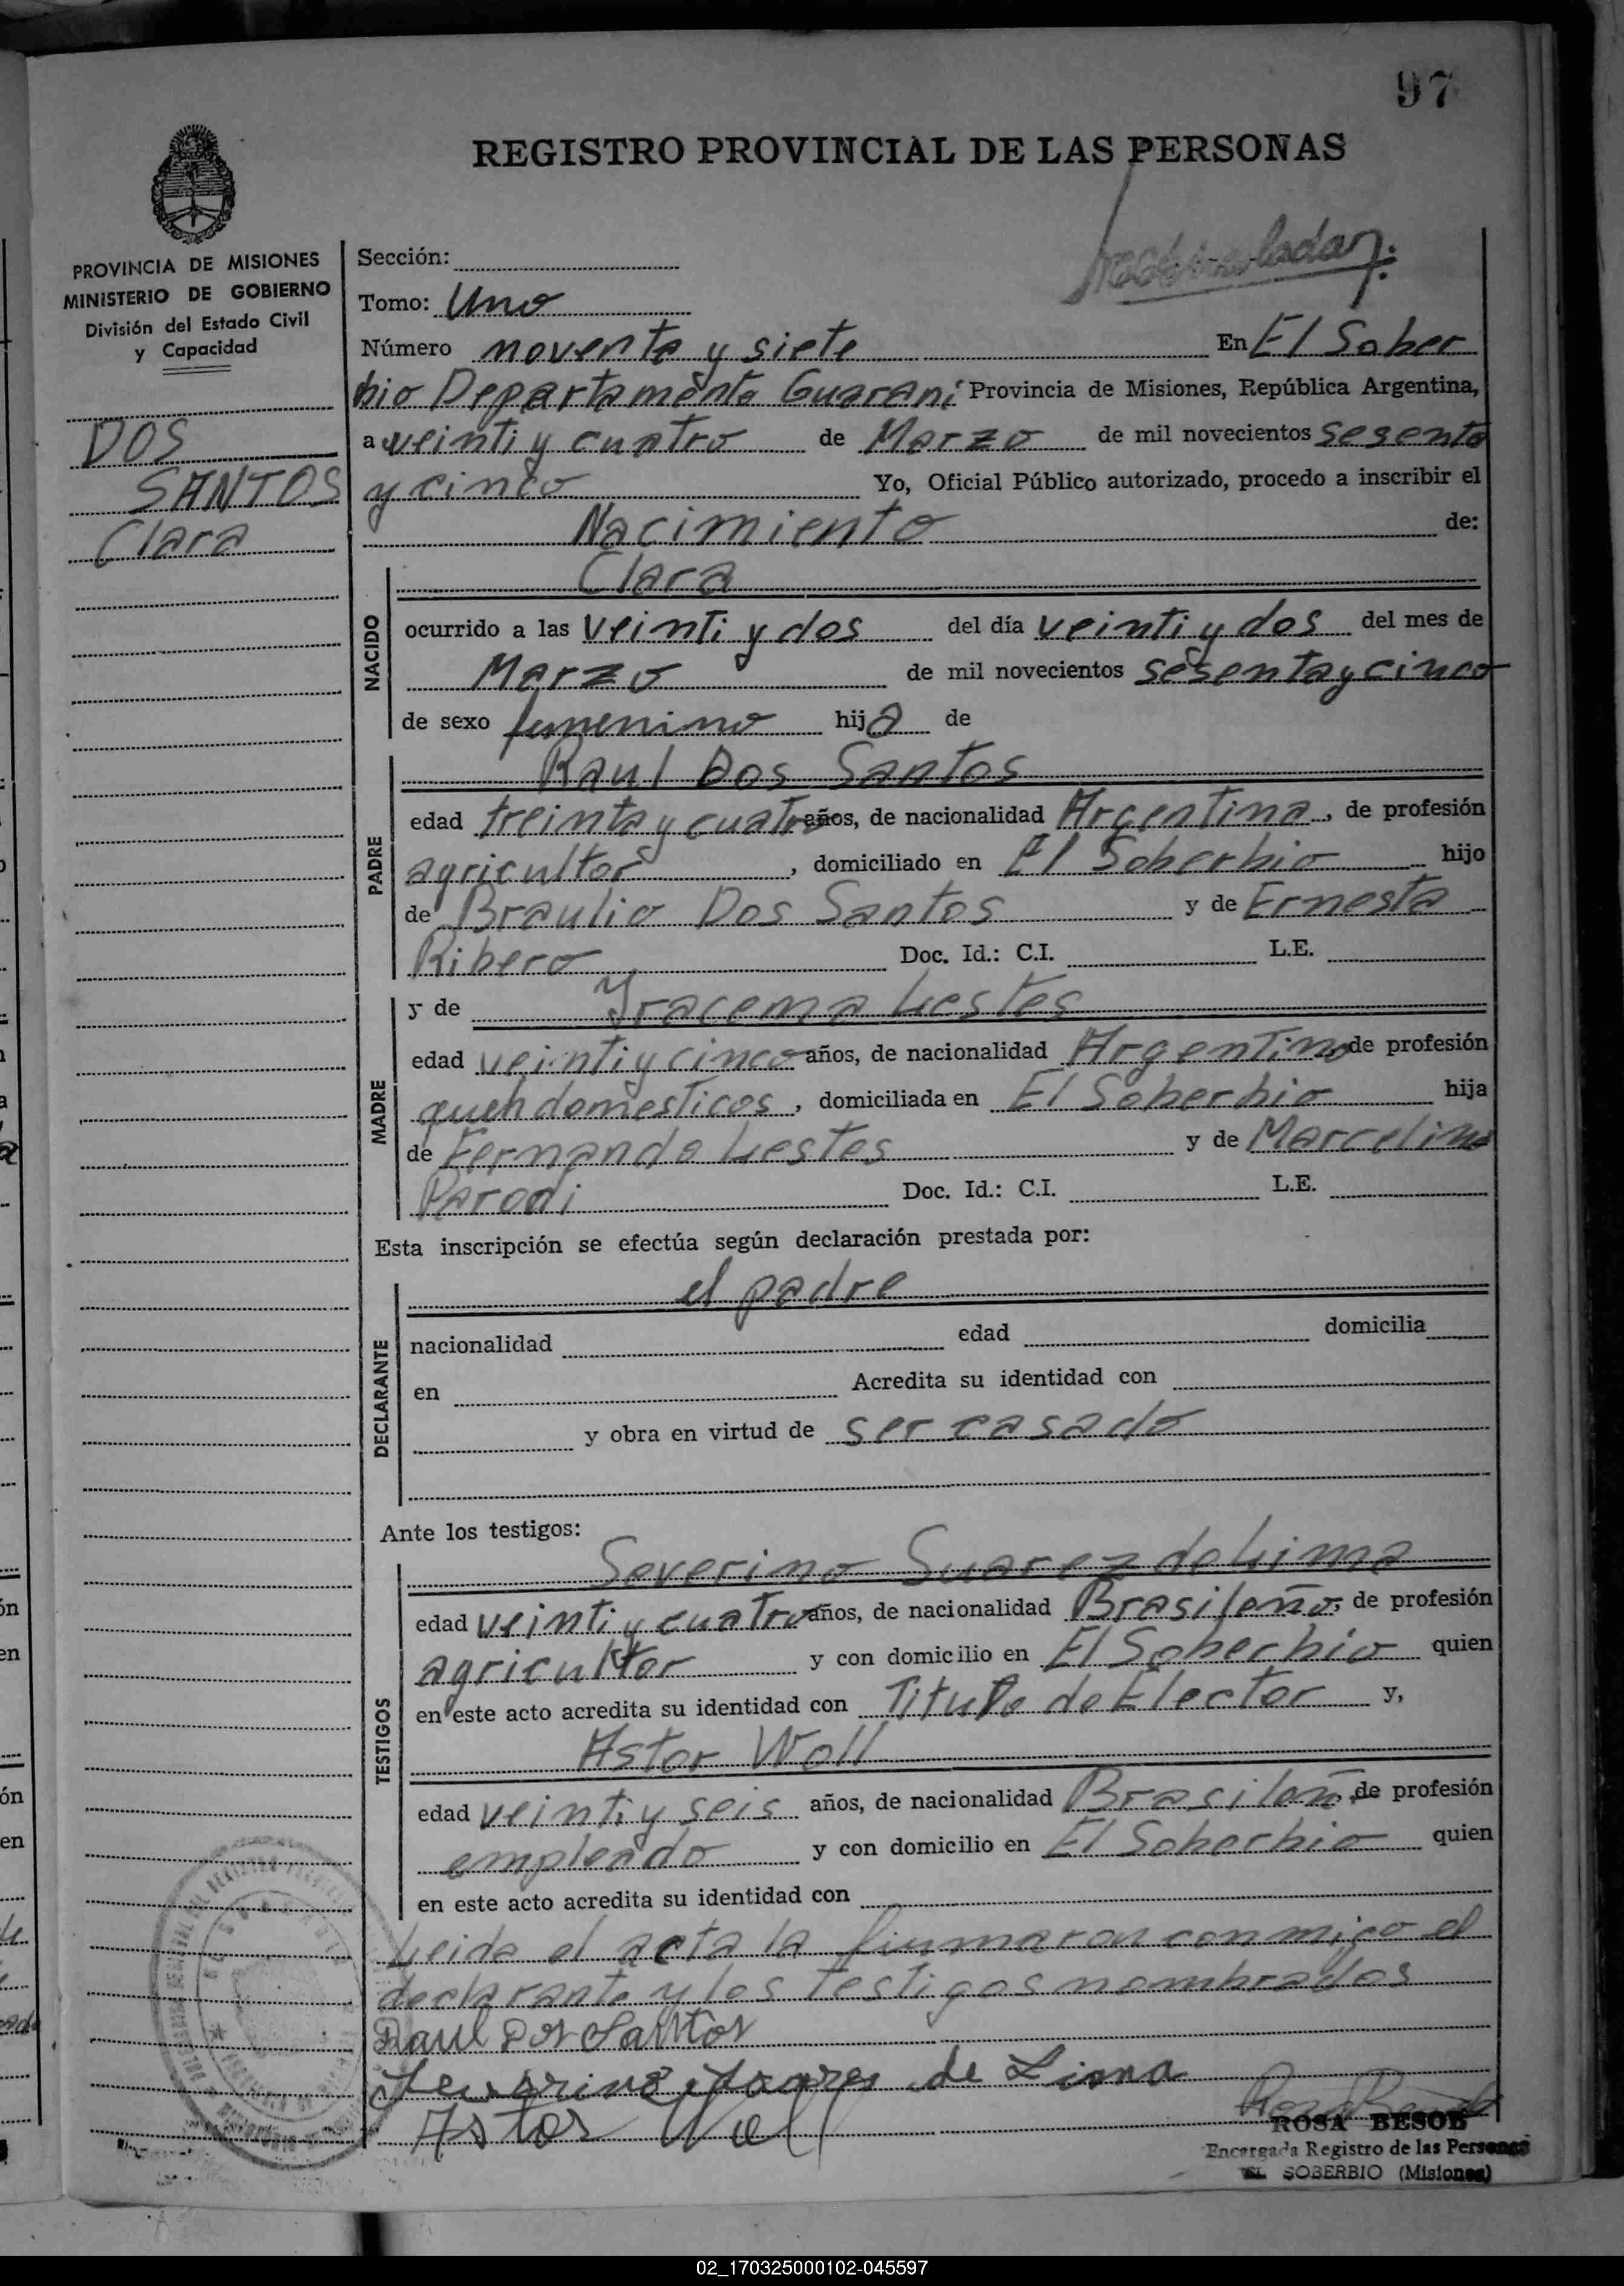 97
REGISTRO PROVINCIAL DE LAS PERSONAS
PROVINCIA DE MISIONES
MINISTERIO DE GOBIERNO
División del Estado Civil
y Capacidad
DOS
SANTOS
Clara
Sección:
Tomo: Uno
Número noventa y siete En El Sober
bio Departamento Guaraní Provincia de Misiones, República Argentina,
a veinti y cuatro de Marzo de mil novecientos sesenta
y cinco Yo, Oficial Público autorizado, procedo a inscribir el
Nacimiento de:
NACIDO
Clara
ocurrido a las veinti y dos del día veinti y dos del mes de
Marzo de mil novecientos sesenta y cinco
de sexo femenino hija de
PADRE
Raul Dos Santos
edad treinta y cuatro años, de nacionalidad Argentina, de profesión
agricultor, domiciliado en El Soberbio hijo
de Braulio Dos Santos y de Ernesta
Ribero Doc. Id.: C.I. L.E.
MADRE
y de Yracema Lestes
edad veinti y cinco años, de nacionalidad Argentina de profesión
queh domesticos, domiciliada en El Soberbio hija
de Fernando Lestes y de Marcelina
Parodi Doc. Id.: C.I. L.E.
Esta inscripción se efectúa según declaración prestada por:
DECLARANTE
el padre
nacionalidad edad domicilia
en Acredita su identidad con
y obra en virtud de ser casado
Ante los testigos:
TESTIGOS
Severino Suarez de Lima
edad veinti y cuatro años, de nacionalidad Brasileño, de profesión
agricultor y con domicilio en El Soberbio quien
en este acto acredita su identidad con Titulo de Elector y,
Astor Woll
edad veinti y seis años, de nacionalidad Brasileñ de profesión
empleado y con domicilio en El Soberbio quien
en este acto acredita su identidad con
Leida el acta la firmaron conmigo el
declarante y los testigos nombrados
Raul Dos Santos
Severino Soares de Lima
Astor Woll
ROSA BESOB
Encargada Registro de las Personas
EL SOBERBIO (Misiones)
02_170325000102-045597